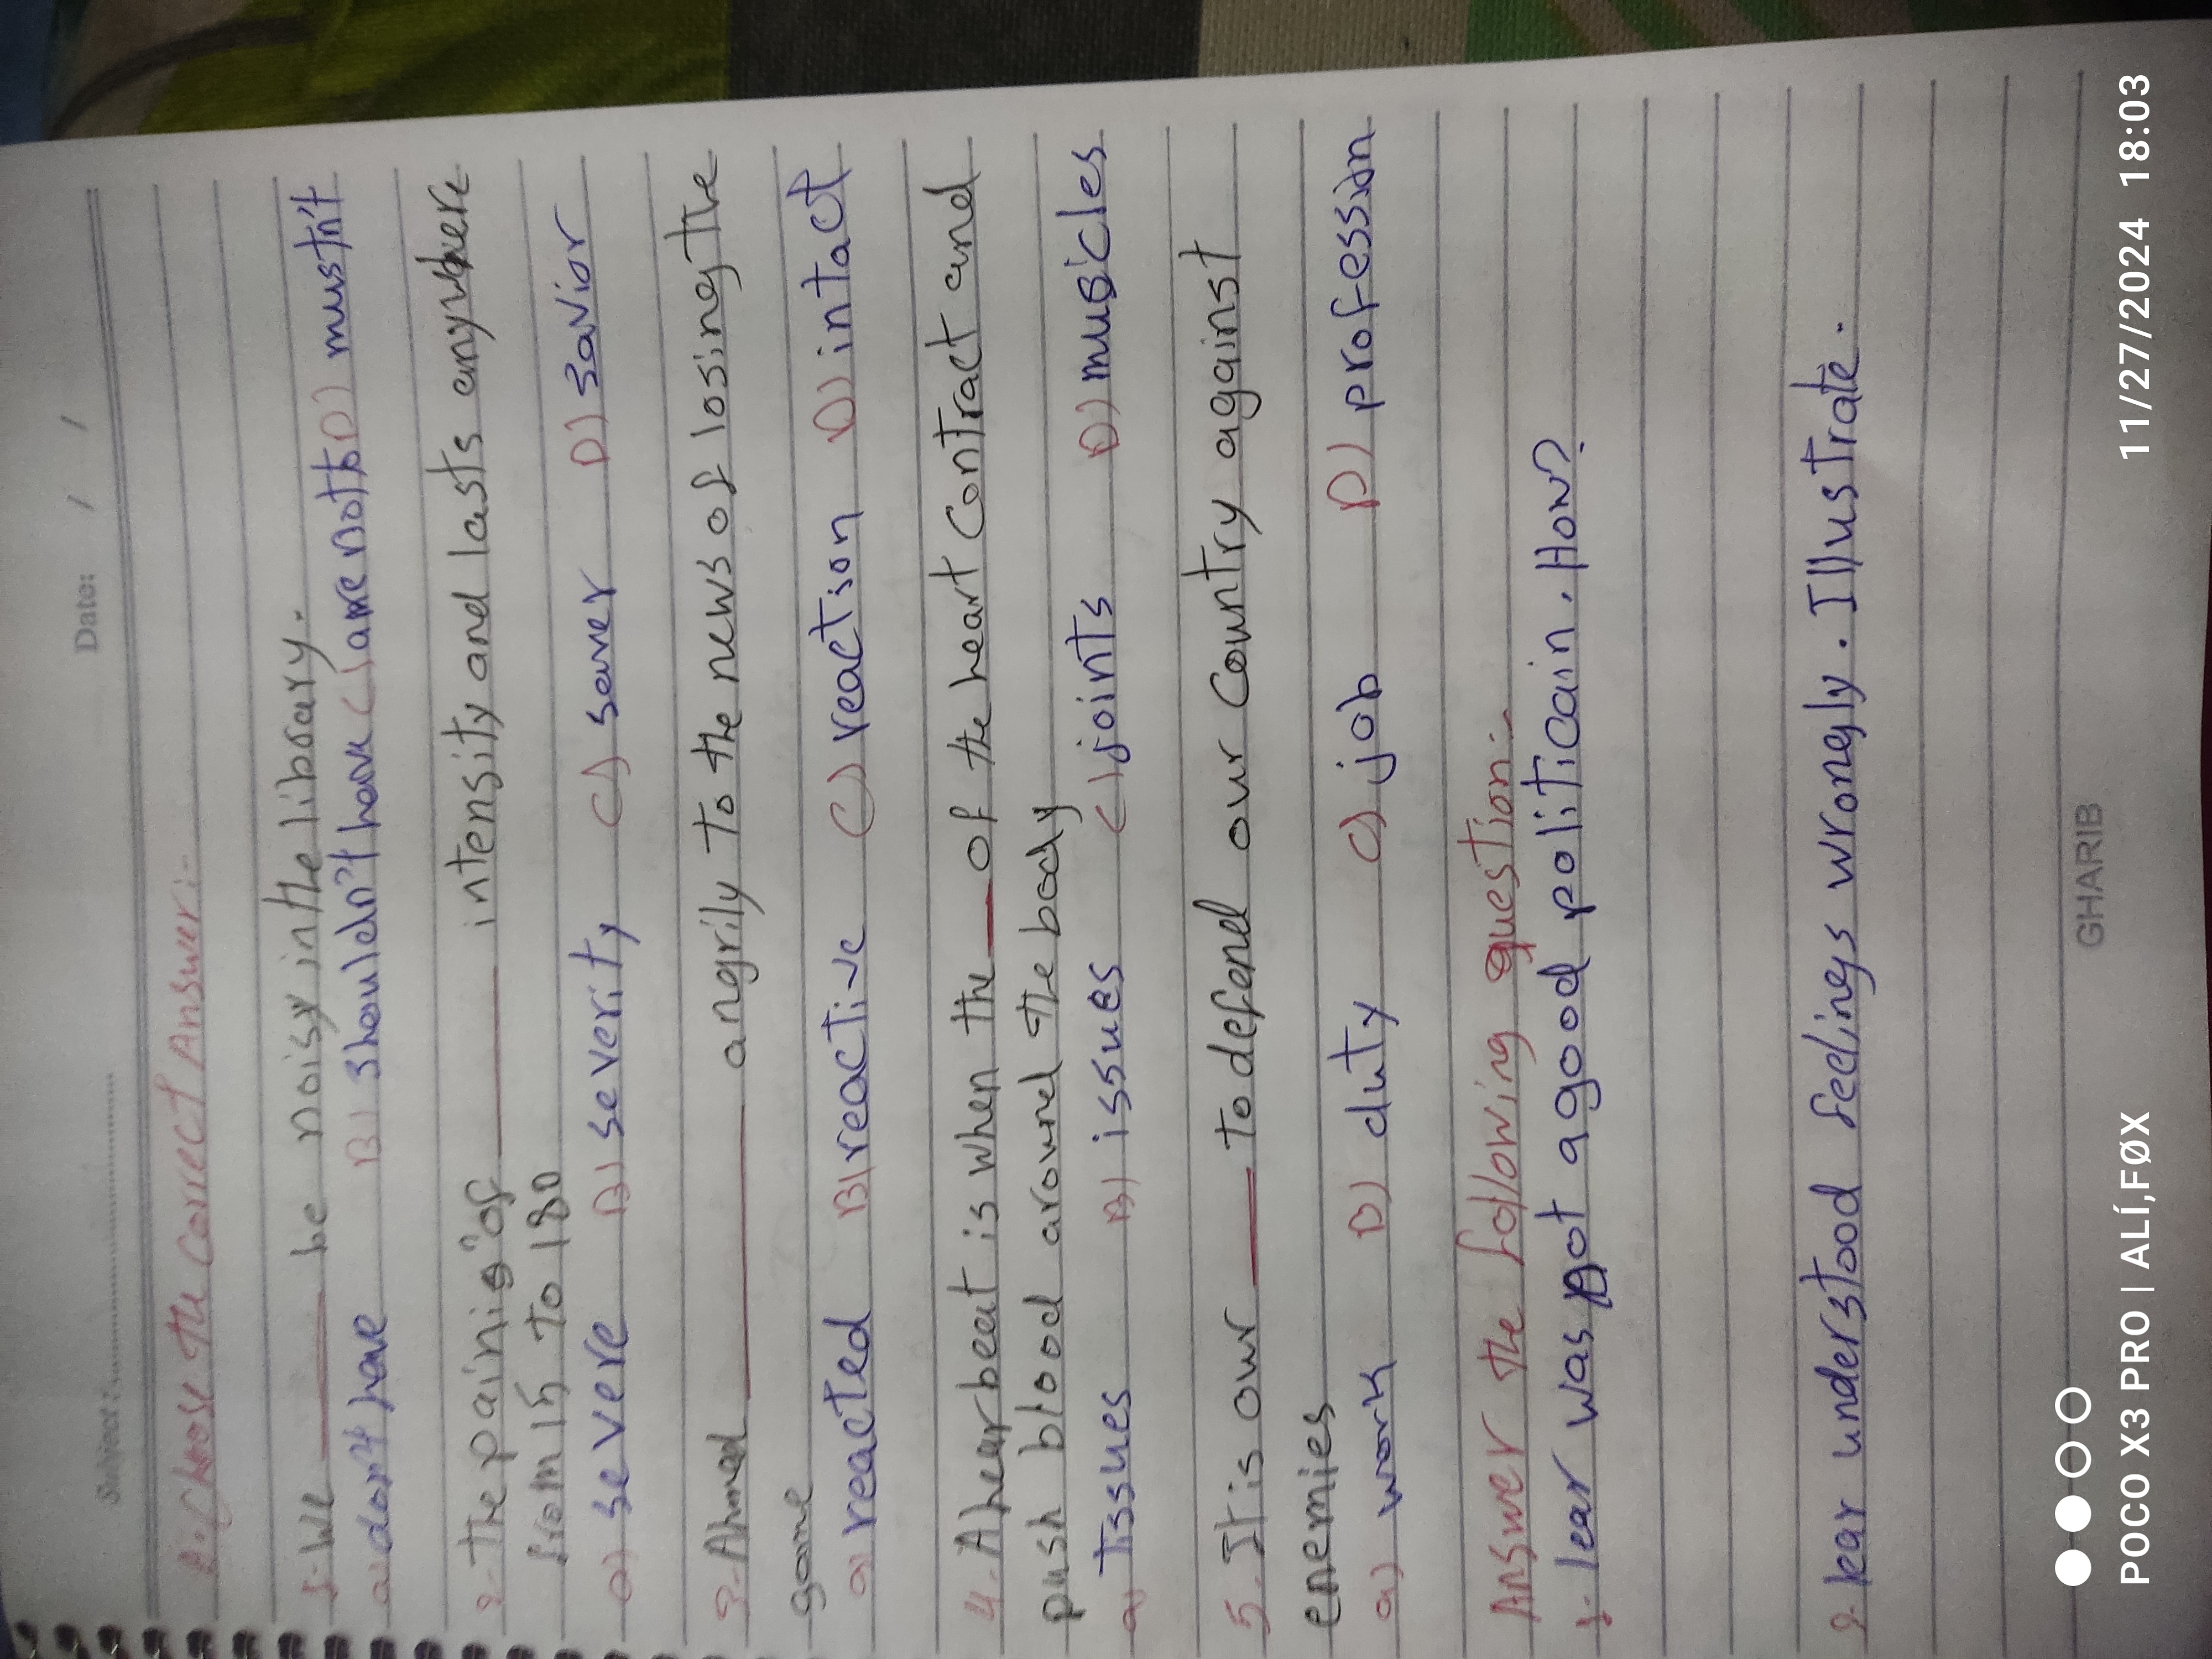 Subject :
Date: / /
2. Choose the Correct Answer :-
1- We ______ be noisy in the library.
a) don't have B) shouldn't have C) are not to D) mustn't
2- The pain is of ______ intensity and lasts anywhere
from 15 to 180
a) severe B) severity C) saver D) savior
3- Ahmed ______ angrily to the news of losing the
game
a) reacted B) reactive C) reaction D) intact
4- A hear beat is when the ___ of the heart contract and
push blood around the body
a) Tissues B) issues C) joints D) muscles
5. It is our ____ to defend our country against
enemies
a) work B) duty C) job D) profession
Answer the following question :-
1- lear was not a good politicain. How?
2- lear understood feelings wrongly. Illustrate.
GHARIB
POCO X3 PRO | ALÍ,FØX
11/27/2024 18:03